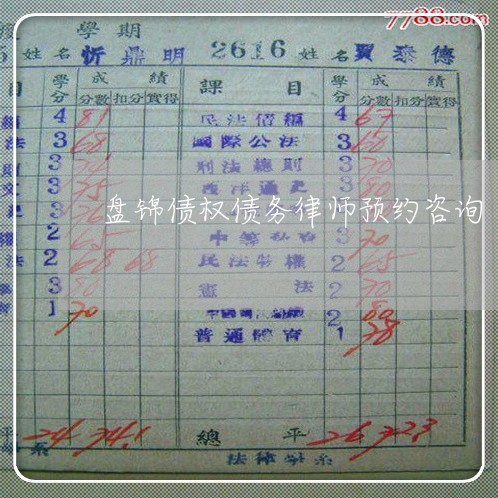 7788.com
學期
姓名 忻鼎明 2616 姓名 賈泰德
目 學分 成績 課目 學分 成績
分數 扣分 實得 分數 扣分 實得
4 81 民法債編 4 67
法 3 68 國際公法 3 60
3 刑法總則 3 70
3 75 西洋通史 3 80
3
盘锦债权债务律师预约咨询
2 65 3 70
法 2 68 68 民法物權 2 65
3 80 憲法 2 70
1 70 2 80
普通體育 1 78
平 24 74.1 總平 26 72.3
系 法律學系